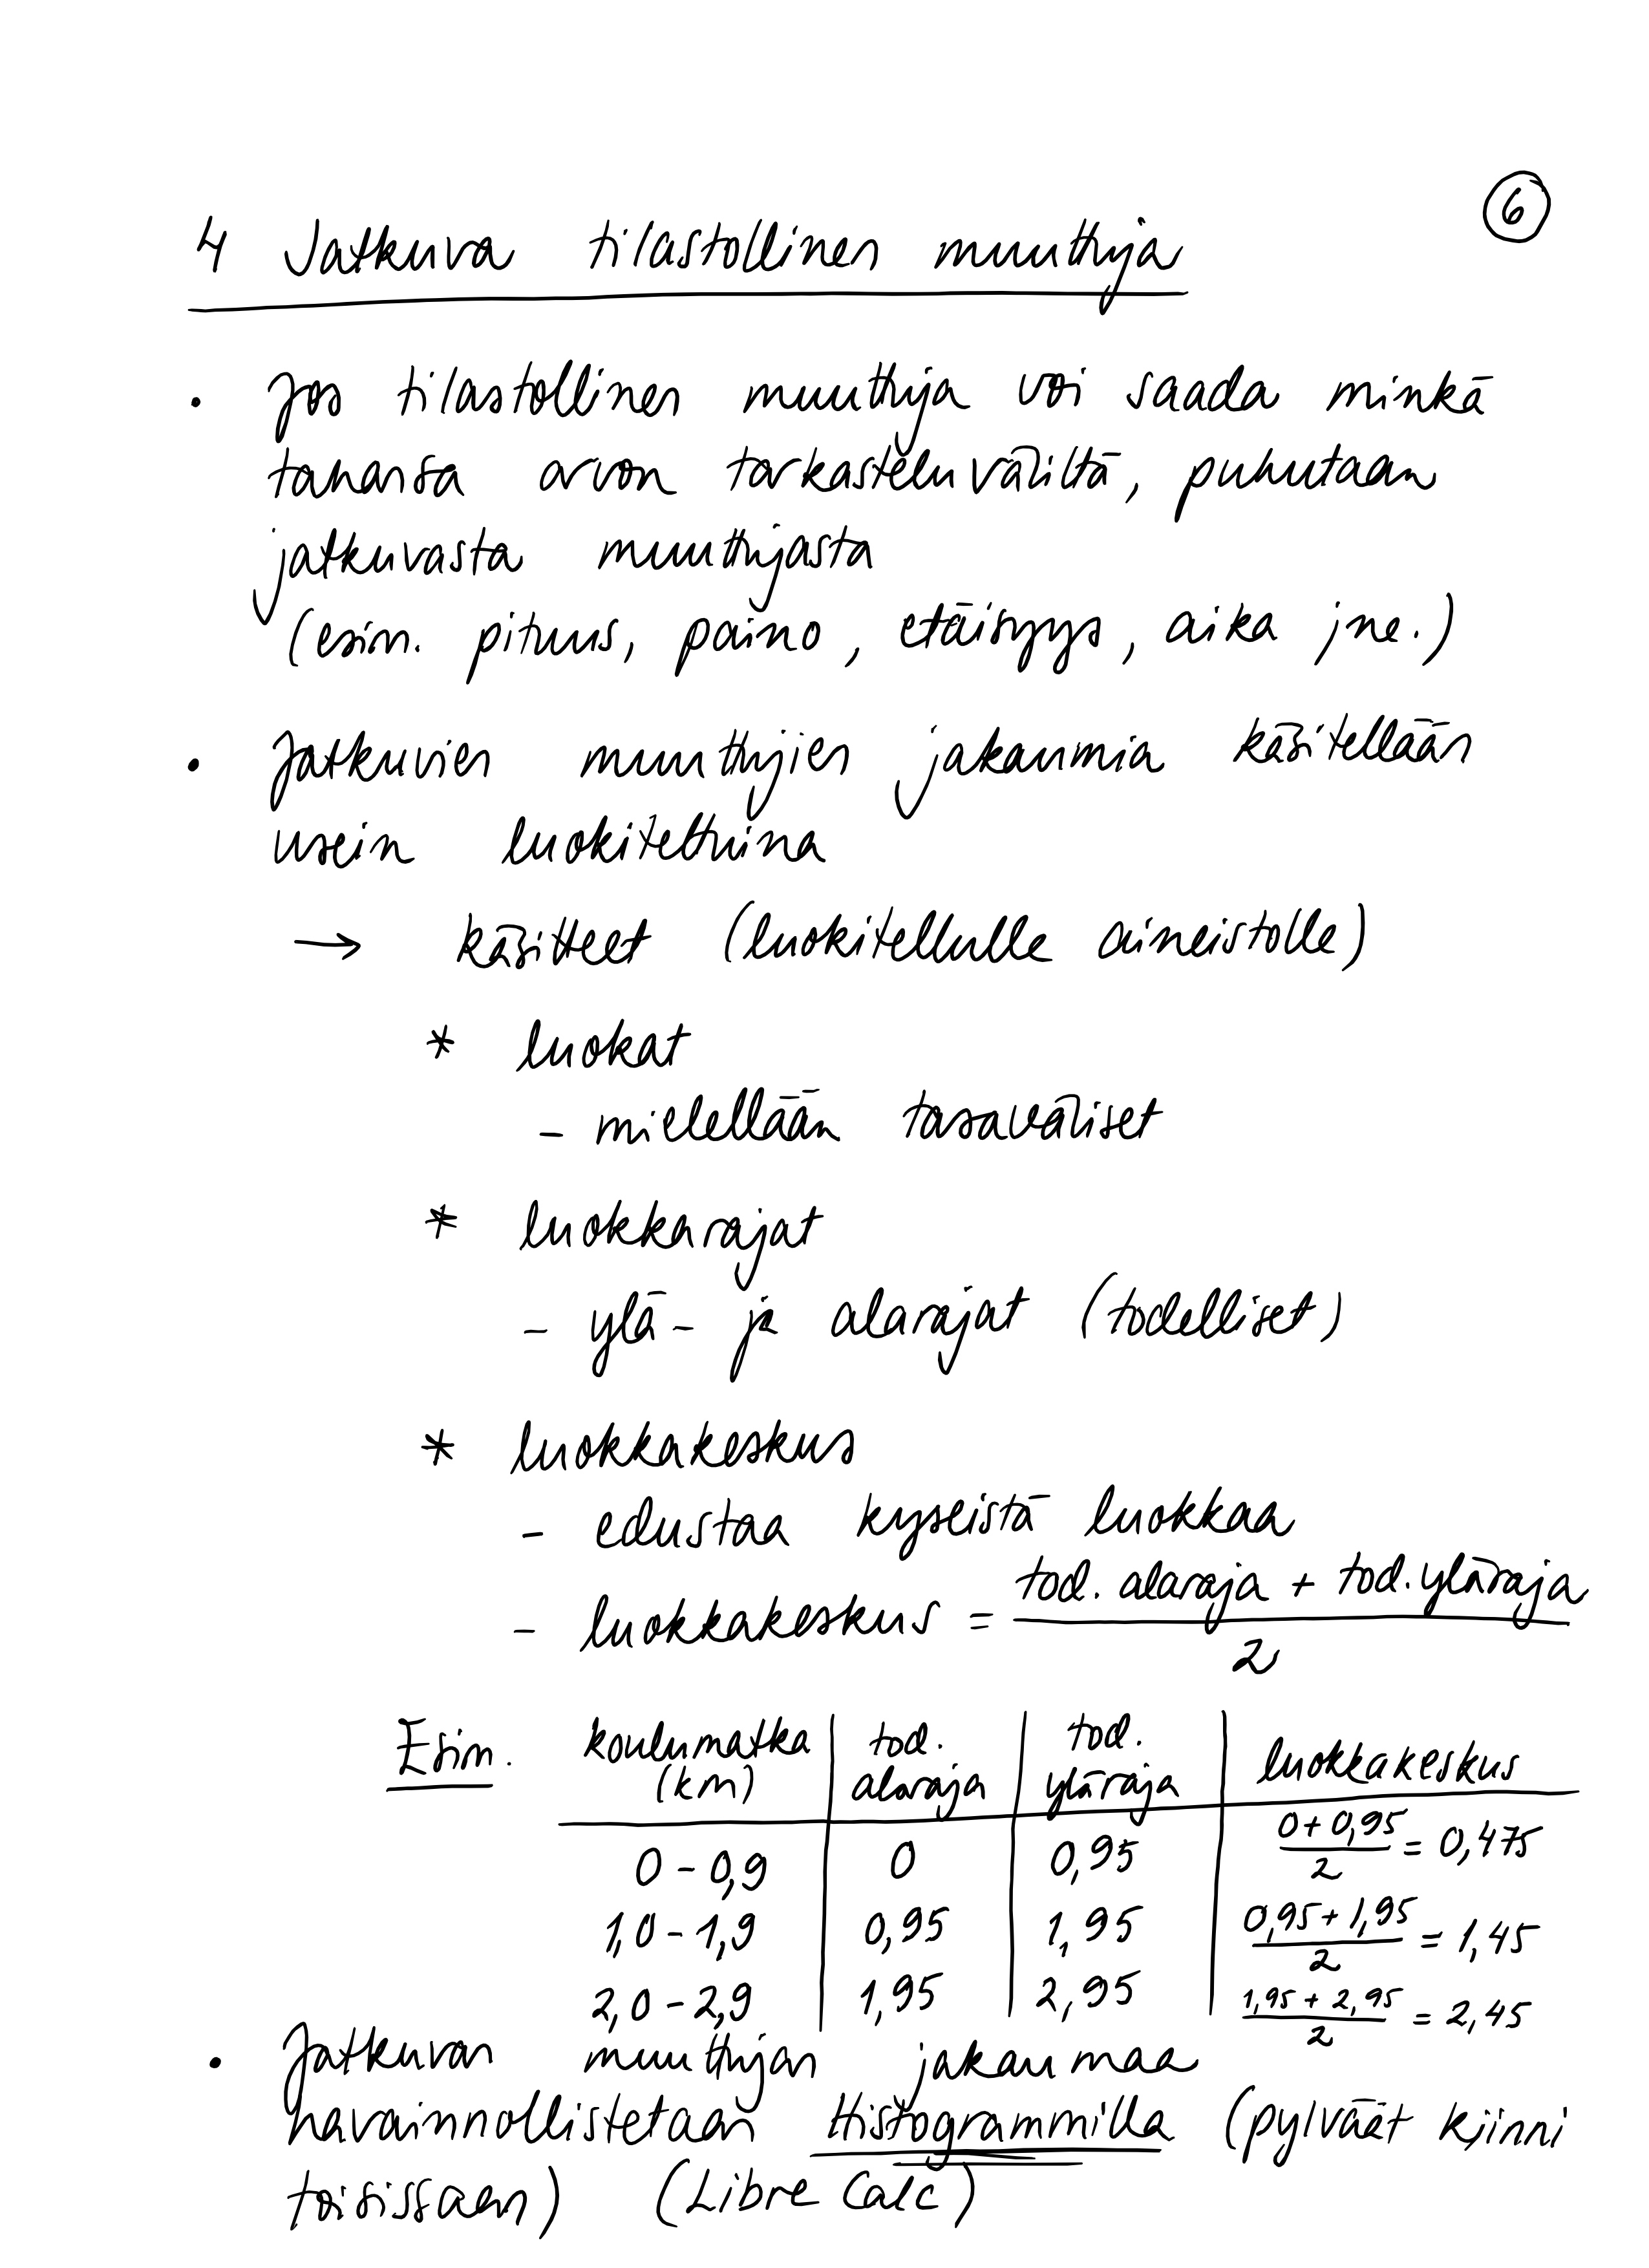 6
4 Jatkuva tilastollinen muuttuja
• Jos tilastollinen muuttuja voi saada minkä
tahansa arvon tarkasteluväliltä, puhutaan
jatkuvasta muuttujasta
(esim. pituus, paino, etäisyys, aika jne.)
• Jatkuvien muuttujien jakaumia käsitellään
usein luokiteltuina
→ käsitteet (luokitellulle aineistolle)
* luokat
- mielellään tasaväliset
* luokkarajat
- ylä- ja alarajat (todelliset)
* luokkakeskus
- edustaa kyseistä luokkaa
- luokkakeskus = (tod. alaraja + tod. yläraja) / 2
Esim. koulumatka (km) | tod. alaraja | tod. yläraja | luokkakeskus
0 - 0,9 | 0 | 0,95 | (0 + 0,95) / 2 = 0,475
1,0 - 1,9 | 0,95 | 1,95 | (0,95 + 1,95) / 2 = 1,45
2,0 - 2,9 | 1,95 | 2,95 | (1,95 + 2,95) / 2 = 2,45
• Jatkuvan muuttujan jakaumaa
havainnollistetaan Histogrammilla (pylväät kiinni
toisissaan) (Libre Calc)